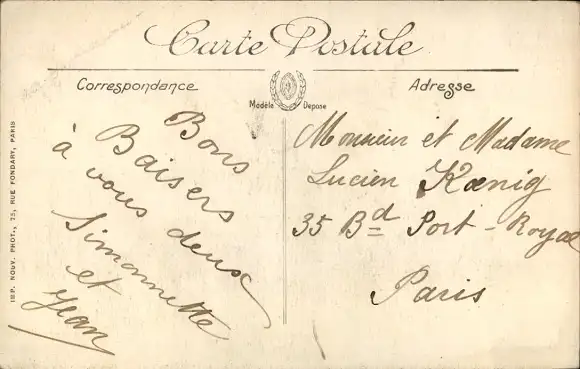 Carte Postale
Correspondance
Adresse
Modèle Déposé
Bons
Baisers
à vous deux
Simonnette
et
Jean
Monsieur et Madame
Lucien Kœnig
35 Bd Port-Royal
Paris
IMP. NOUV. PHOT., 75, RUE FONDARY, PARIS